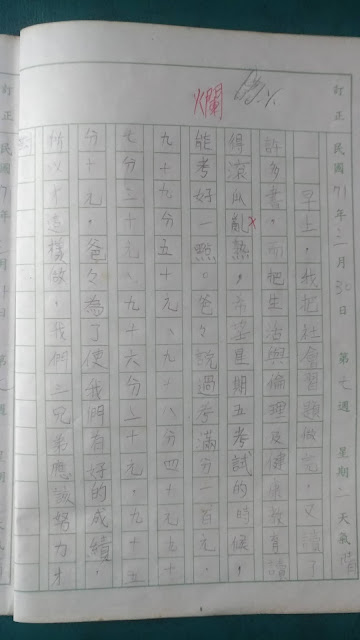 訂正
民國71年 月 日 第 週 星期 天氣
爛
早上,我把社會習題做完,又讀了
許多書,而把生活與倫理及健康教育讀
得滾瓜亂熟,希望星期五考試的時候,
能考好一點。爸々說過考滿分一百元,
九十九分五十元、九十八分四十元九十
七分三十元、九十六分二十元,九十五
分十元,爸々為了使我們有好的成績,
所以才這樣做,我們三兄弟應該努力才
訂正